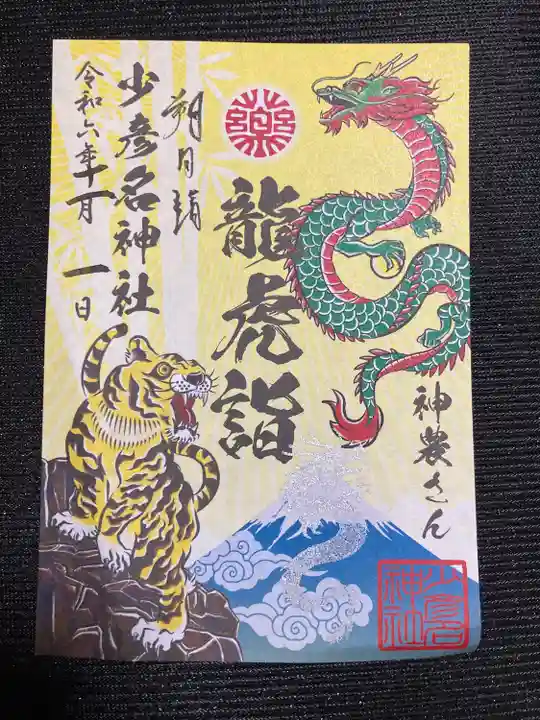 神農さん
龍虎詣
薬
朔月詣
少彦名神社
令和六年十一月一日
少彦名神社